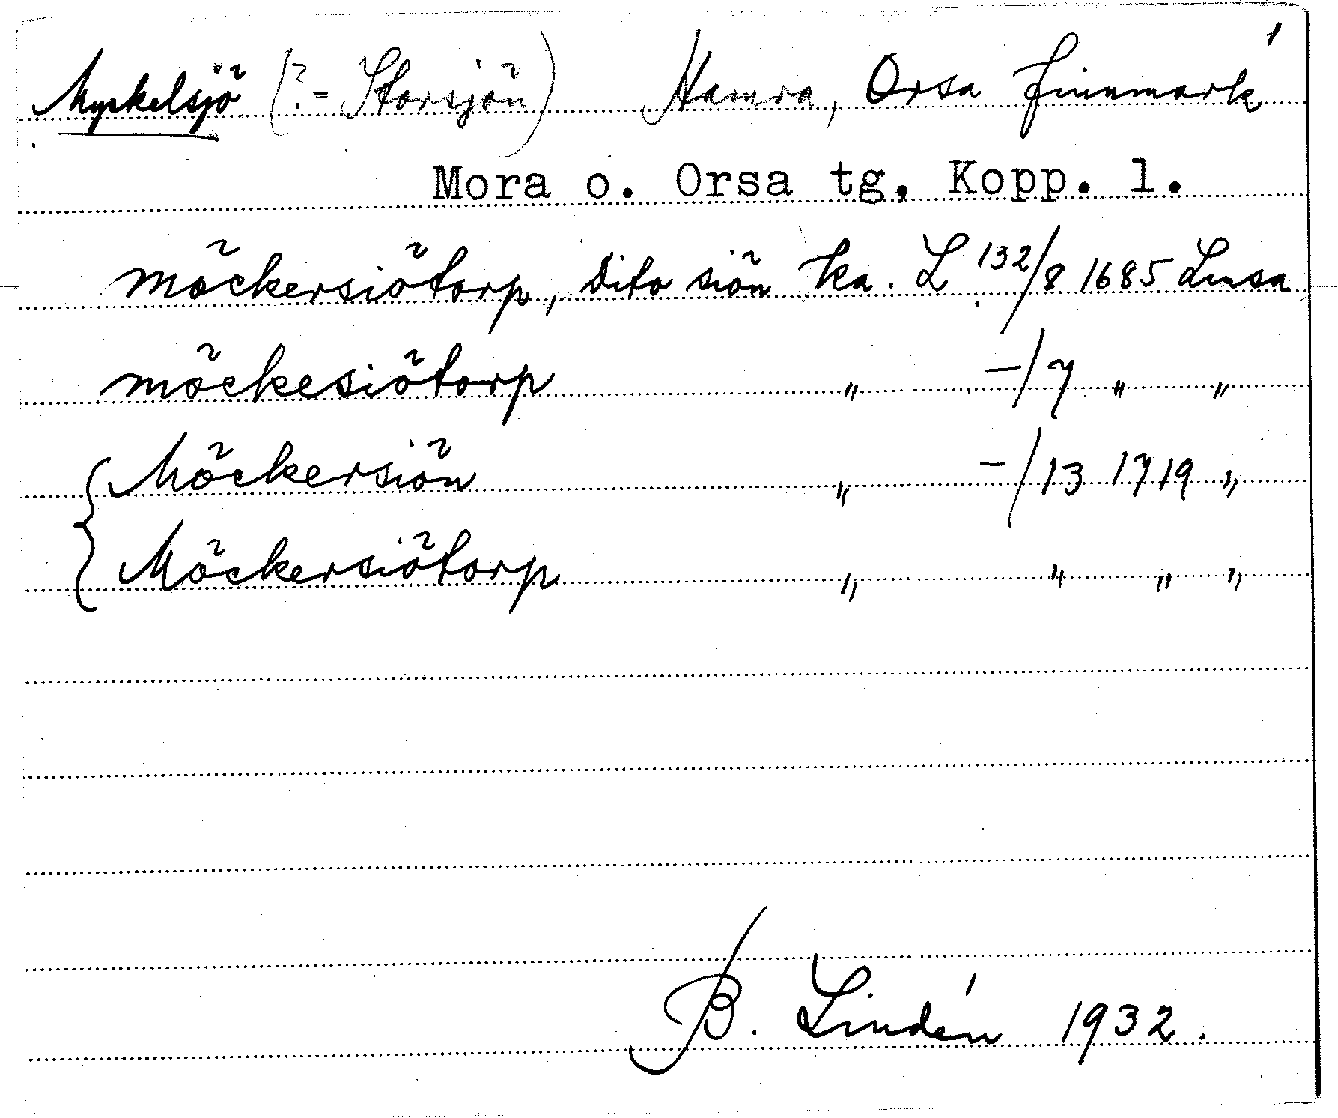 Myckelsjö (?.= Storsjön) Hamra, Orsa finnmark
Mora o. Orsa tg, Kopp. l.
möckersiötorp, dito siön ka. L 132/8 1685 Lmsa
möckesiötorp „ -/7 „ „
Möckersiön „ -/13 1719 „
Möckersiötorp „ „ „ „
B. Lindén 1932.